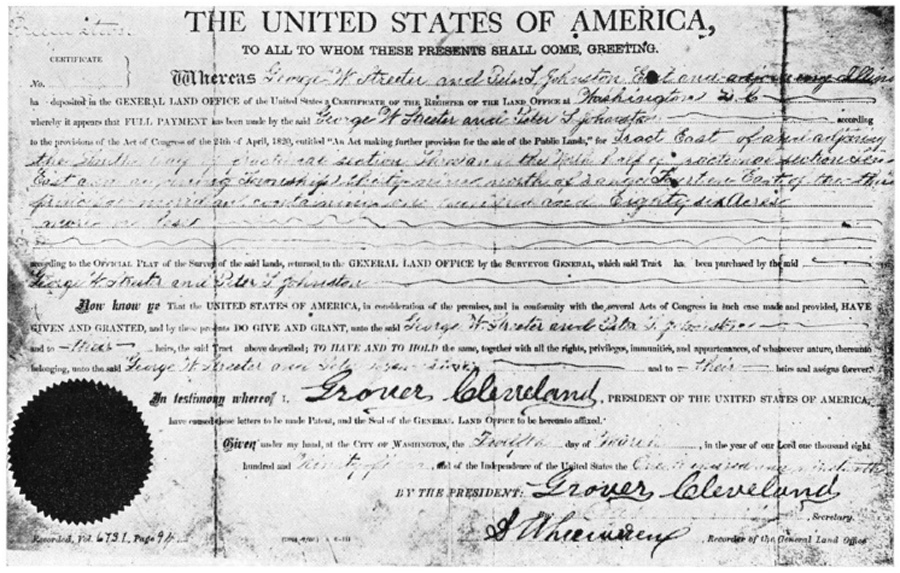 THE UNITED STATES OF AMERICA,
TO ALL TO WHOM THESE PRESENTS SHALL COME, GREETING.
CERTIFICATE
No.
Whereas George W Streeter and Peter S Johnston East and adjoining
ha deposited in the GENERAL LAND OFFICE of the United States a CERTIFICATE OF THE REGISTER OF THE LAND OFFICE AT Washington D C
whereby it appears that FULL PAYMENT has been made by the said George W Streeter and Peter S Johnston according
to the provisions of the Act of Congress of the 24th of April, 1820, entitled "An Act making further provision for the sale of the Public Lands," for Tract East of and adjoining
the of fractional section and the half of fractional section
East and adjoining Township Thirty nine north of range Fourteen East of the
containing one hundred and Eighty six Acres
more or less
according to the OFFICIAL PLAT of the Survey of the said lands, returned to the GENERAL LAND OFFICE by the SURVEYOR GENERAL, which said Tract ha been purchased by the said
George W Streeter and Peter S Johnston
Now know ye That the UNITED STATES OF AMERICA, in consideration of the premises, and in conformity with the several Acts of Congress in such case made and provided, HAVE
GIVEN AND GRANTED, and by these presents DO GIVE AND GRANT, unto the said George W Streeter and Peter S Johnston
and to their heirs, the said Tract above described; TO HAVE AND TO HOLD the same, together with all the rights, privileges, immunities, and appurtenances, of whatsoever nature, thereunto
belonging, unto the said George W Streeter and and to their heirs and assigns forever.
In testimony whereof I, Grover Cleveland, PRESIDENT OF THE UNITED STATES OF AMERICA,
have caused these letters to be made Patent, and the Seal of the GENERAL LAND OFFICE to be hereunto affixed.
Given under my hand, at the CITY OF WASHINGTON, the day of , in the year of our Lord one thousand eight
hundred and Ninety , and of the Independence of the United States the One hundred and
BY THE PRESIDENT: Grover Cleveland
By , Secretary.
Recorded, Vol. 6731, Page 94 Recorder of the General Land Office